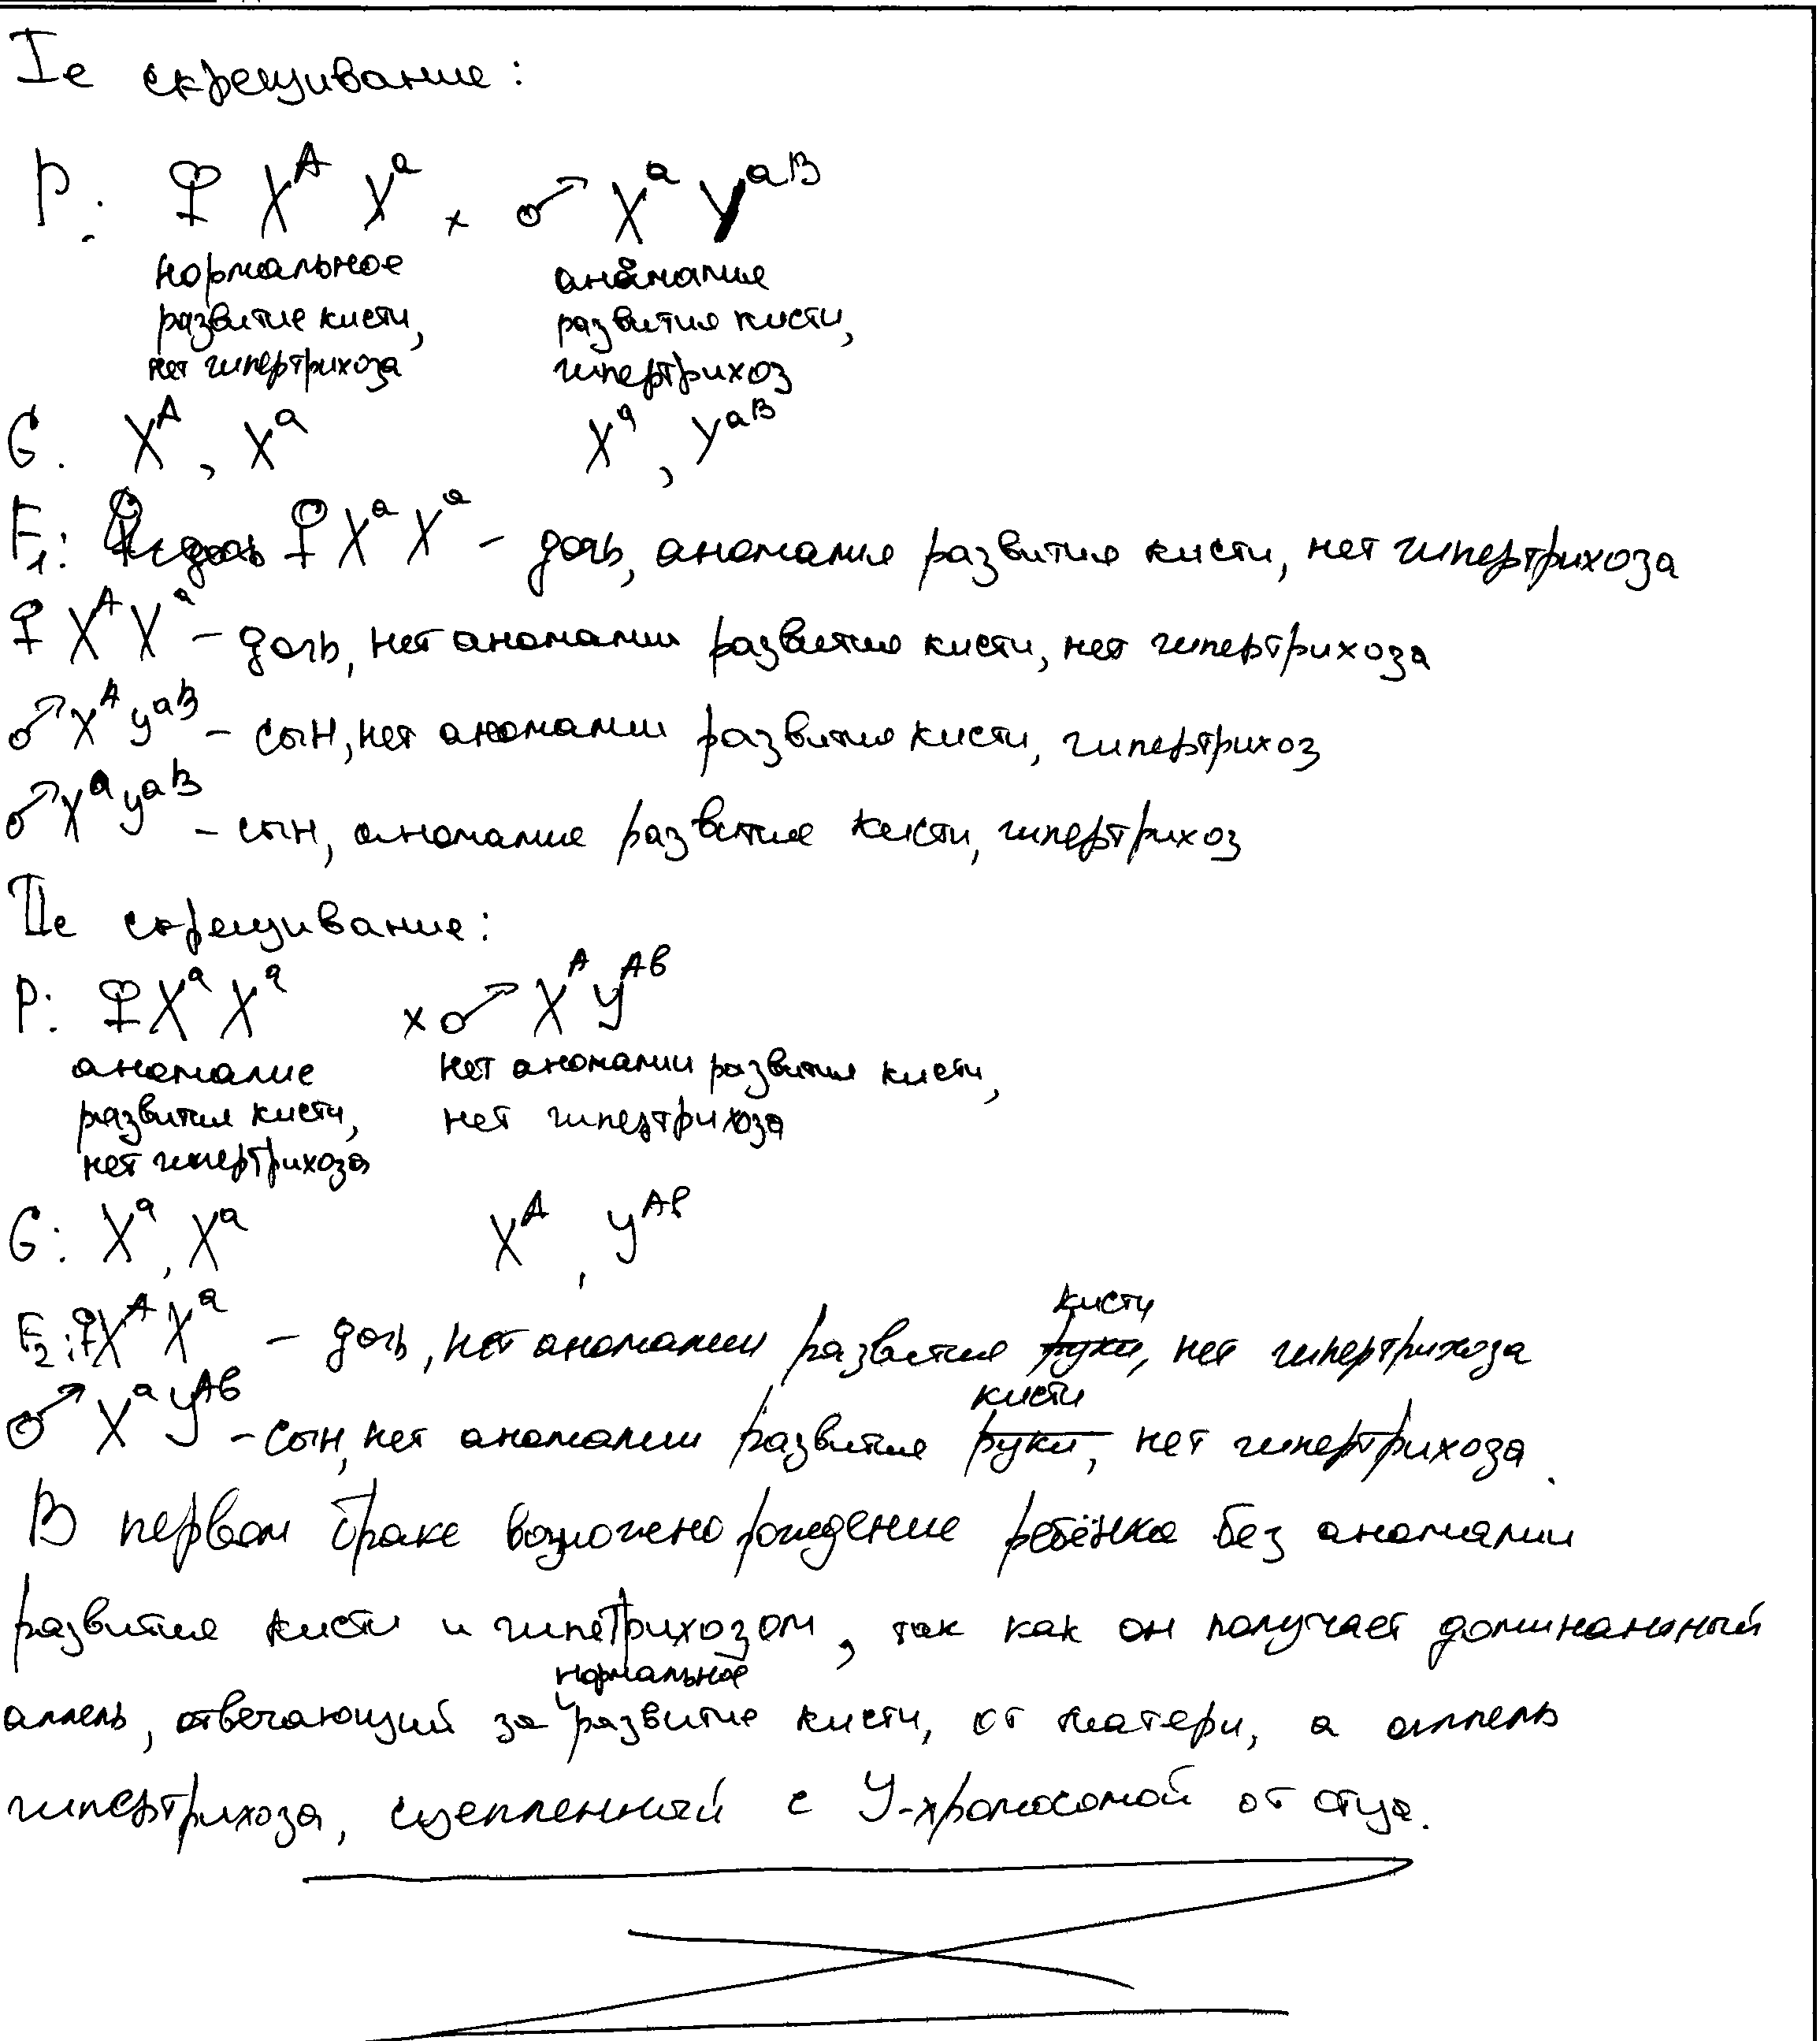 Iе скрещивание:
P: ♀ X^A X^a × ♂ X^a Y^aB
нормальное аномалия
развитие кисти, развития кисти,
нет гипертрихоза гипертрихоз
G. X^A, X^a X^a, Y^aB
F₁: ♀ X^a X^a – дочь, аномалия развития кисти, нет гипертрихоза
♀ X^A X^a – дочь, нет аномалии развития кисти, нет гипертрихоза
♂ X^A Y^aB – сын, нет аномалии развития кисти, гипертрихоз
♂ X^a Y^aB – сын, аномалия развития кисти, гипертрихоз
IIе скрещивание:
P: ♀ X^a X^a × ♂ X^A Y^Aв
аномалия нет аномалии развития кисти,
развития кисти, нет гипертрихоза
нет гипертрихоза
G: X^a, X^a X^A, Y^Aв
F₂: ♀ X^A X^a – дочь, нет аномалии развития кисти, нет гипертрихоза
♂ X^a Y^Aв – сын, нет аномалии развития кисти, нет гипертрихоза.
В первом браке возможно рождение ребёнка без аномалии
развития кисти и гипетрихозом, так как он получает доминанный
аллель, отвечающий за нормальное развитие кисти, от матери, а аллель
гипертрихоза, сцепленный с Y-хромосомой от отца.